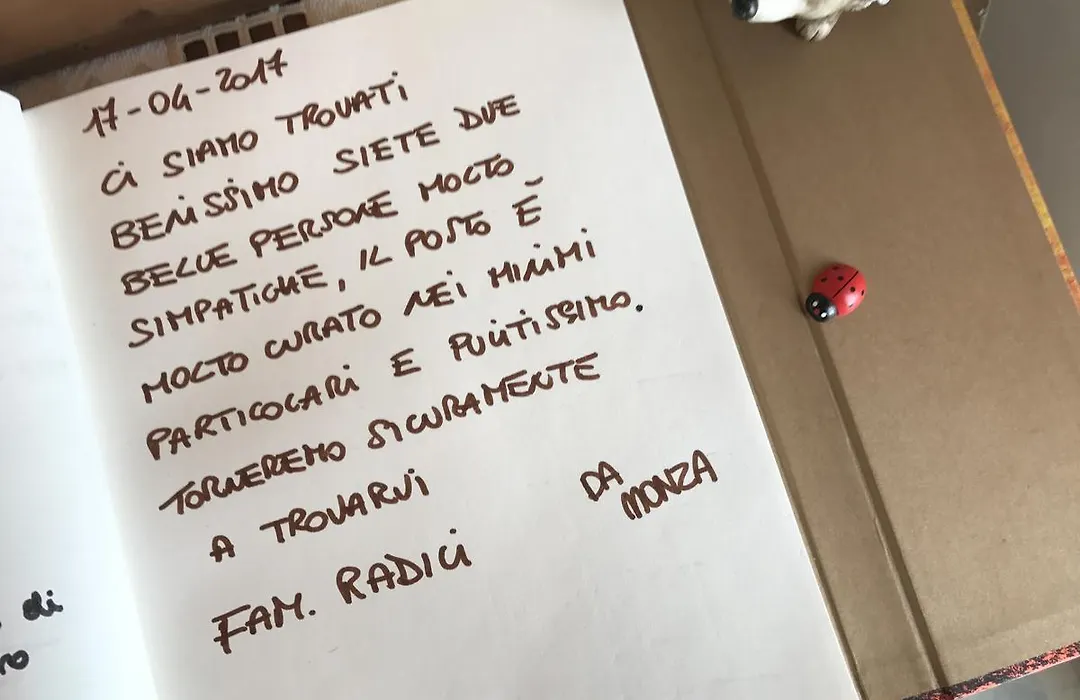 17-04-2017
CI SIAMO TROVATI
BENISSIMO SIETE DUE
BELLE PERSONE MOLTO
SIMPATICHE, IL POSTO È
MOLTO CURATO NEI MINIMI
PARTICOLARI E PULITISSIMO.
TORNEREMO SICURAMENTE
A TROVARVI
DA MONZA
FAM. RADICI
di